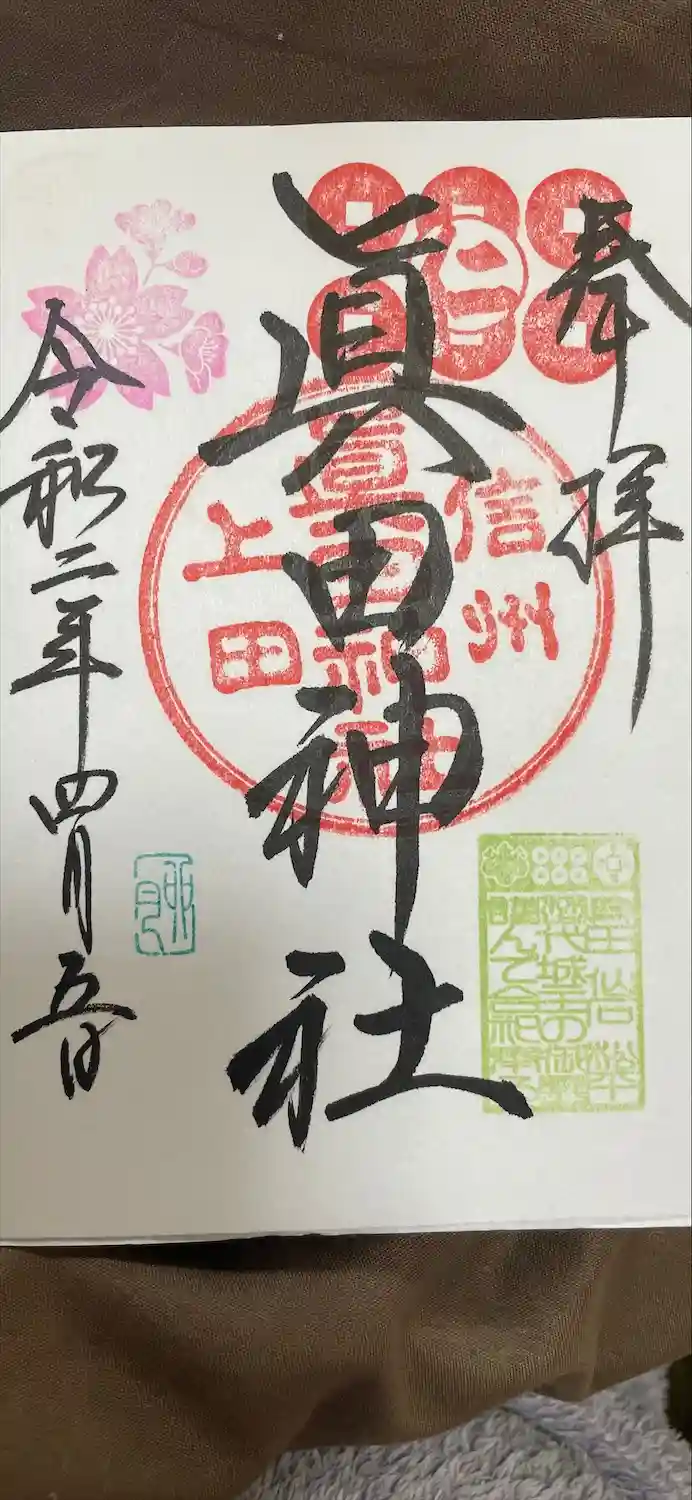 奉拝
眞田神社
令和二年四月五日
信州
眞田神社
上田